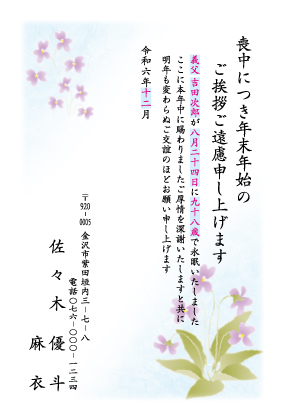 喪中につき年末年始の
ご挨拶ご遠慮申し上げます
義父 吉田次郎が八月二十四日に九十八歳で永眠いたしました
ここに本年中に賜わりましたご厚情を深謝いたしますと共に
明年も変わらぬご交誼のほどお願い申し上げます
令和六年十二月
〒920-0005 金沢市紫田垣内三-七-八
電話〇七六-〇〇〇-一二三四
佐々木 優斗
麻衣